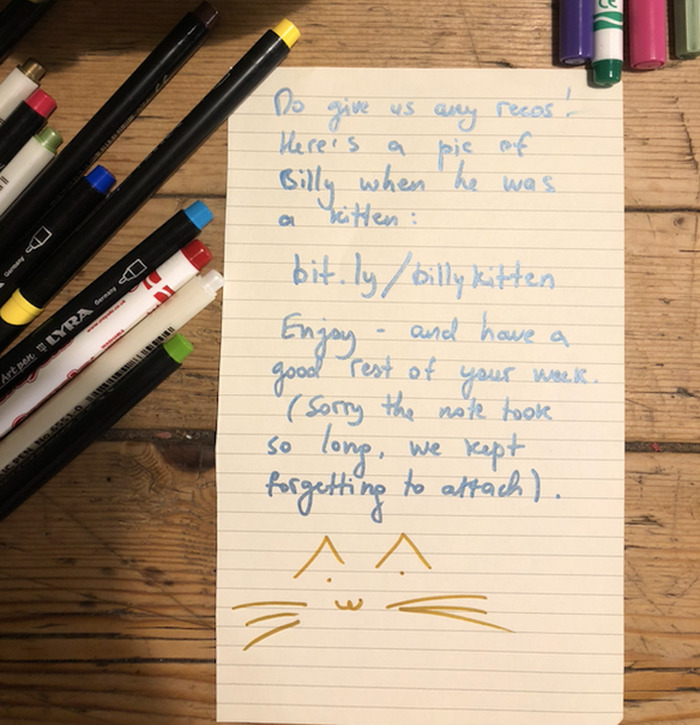 Do give us any recos!
Here's a pic of
Billy when he was
a kitten:
bit.ly/billykitten
Enjoy - and have a
good rest of your week.
(Sorry the note took
so long, we kept
forgetting to attach).
CE
Germany
Germany
Art pen LYRA